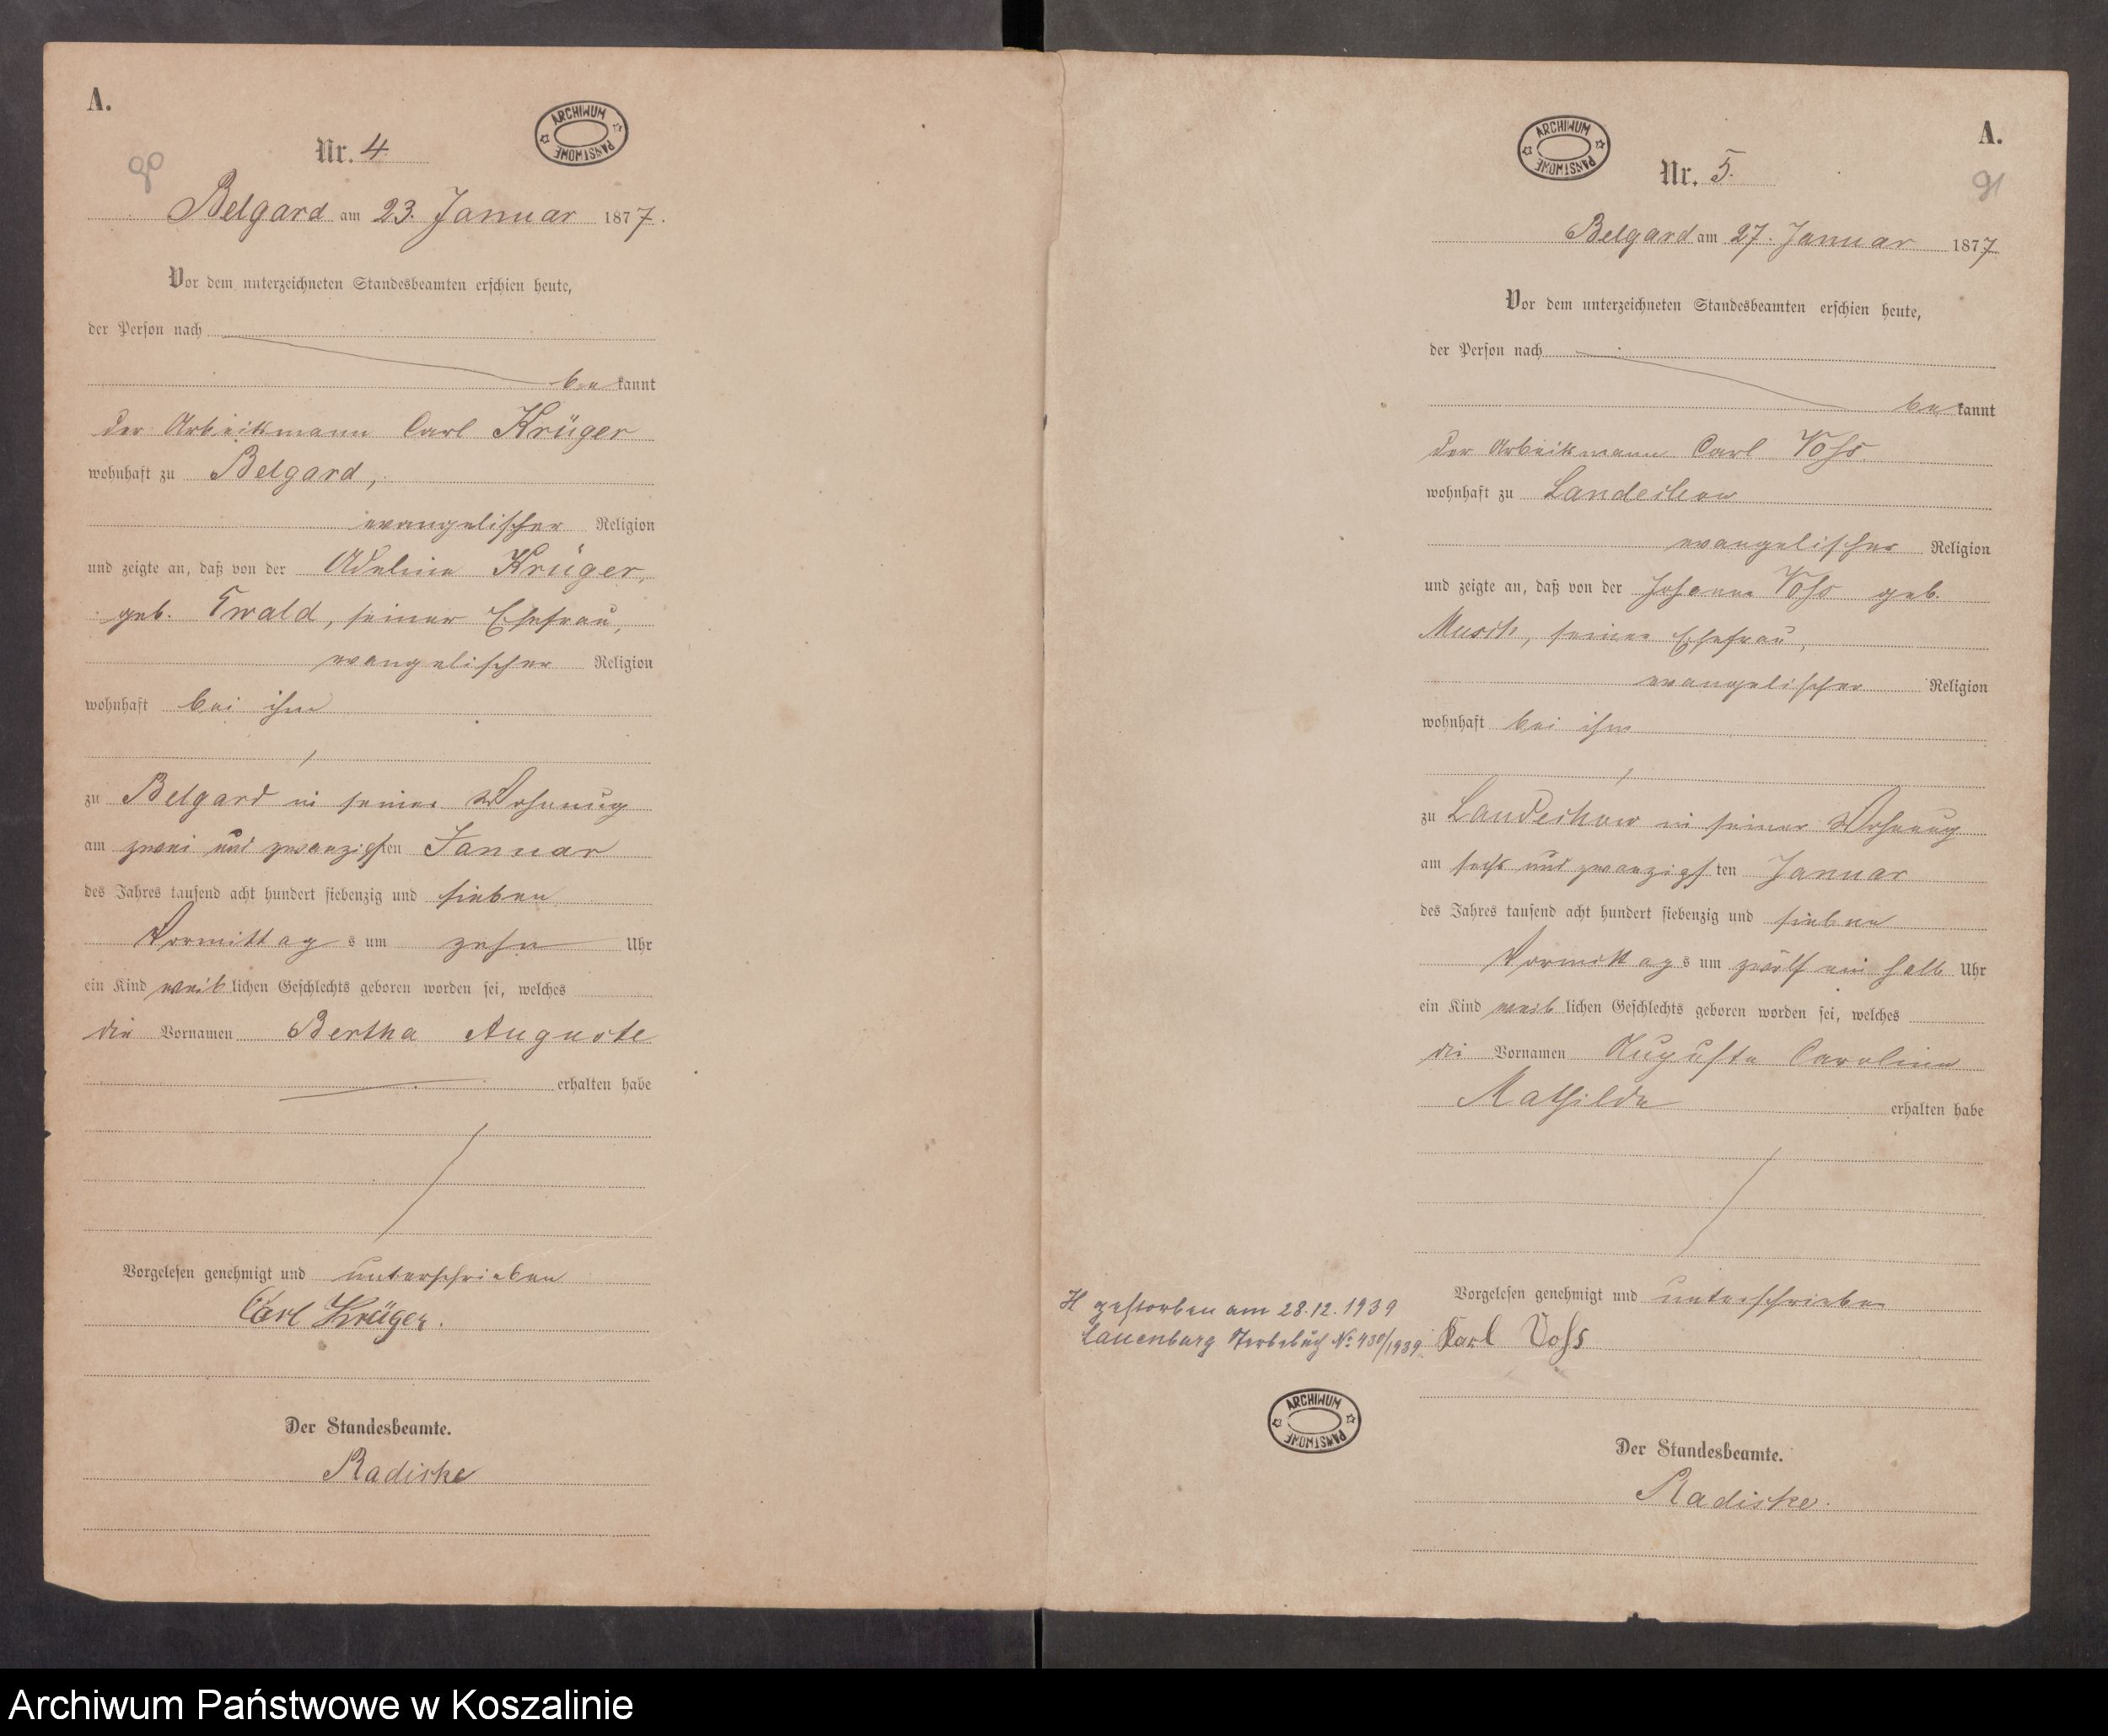 A.
90
Nr. 4
ARCHIWUM PAŃSTWOWE
Belgard am 23. Januar 1877.
Vor dem unterzeichneten Standesbeamten erschien heute,
der Person nach
bekannt
der Arbeitsmann Carl Krüger
wohnhaft zu Belgard,
evangelischer Religion
und zeigte an, daß von der Adeline Krüger,
geb. Ewald, seiner Ehefrau,
evangelischer Religion
wohnhaft bei ihm
zu Belgard in seiner Wohnung
am zwei und zwanzigsten Januar
des Jahres tausend acht hundert siebenzig und sieben
Vormittags um zehn Uhr
ein Kind weiblichen Geschlechts geboren worden sei, welches
die Vornamen Bertha Auguste
erhalten habe
Vorgelesen genehmigt und unterschrieben
Carl Krüger.
Der Standesbeamte.
Radiske
A.
91
ARCHIWUM PAŃSTWOWE
Nr. 5.
Belgard am 27. Januar 1877
Vor dem unterzeichneten Standesbeamten erschien heute,
der Person nach
bekannt
der Arbeitsmann Carl Voss
wohnhaft zu Landechow
evangelischer Religion
und zeigte an, daß von der Johanne Voss geb.
Musch, seiner Ehefrau,
evangelischer Religion
wohnhaft bei ihm
zu Landechow in seiner Wohnung
am sechs und zwanzigsten Januar
des Jahres tausend acht hundert siebenzig und sieben
Vormittags um zwölf ein halb Uhr
ein Kind weiblichen Geschlechts geboren worden sei, welches
die Vornamen Auguste Caroline
Mathilde erhalten habe
Vorgelesen genehmigt und unterschrieben
Karl Voss
H gestorben am 28.12.1939
Lauenburg Sterbebuch No 430/1939
ARCHIWUM PAŃSTWOWE
Der Standesbeamte.
Radiske.
Archiwum Państwowe w Koszalinie